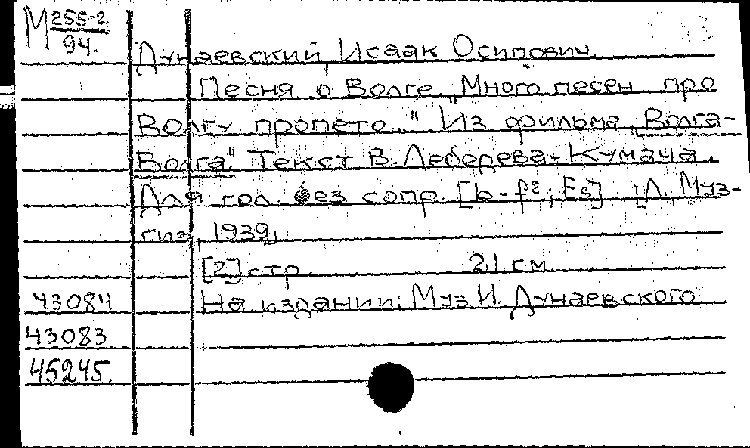 М 255-2
94.
Дунаевский, Исаак Осипович.
Песня о Волге „Много песен про
Волгу пропето..." Из фильма „Волга-
Волга" Текст В. Лебедева-Кумача.
Для гол. без сопр. [b-f²; Es] [Л. Муз-
гиз, 1939]
[2] стр. 21 см.
43084 На издании: Муз. И. Дунаевского
43083
45245.